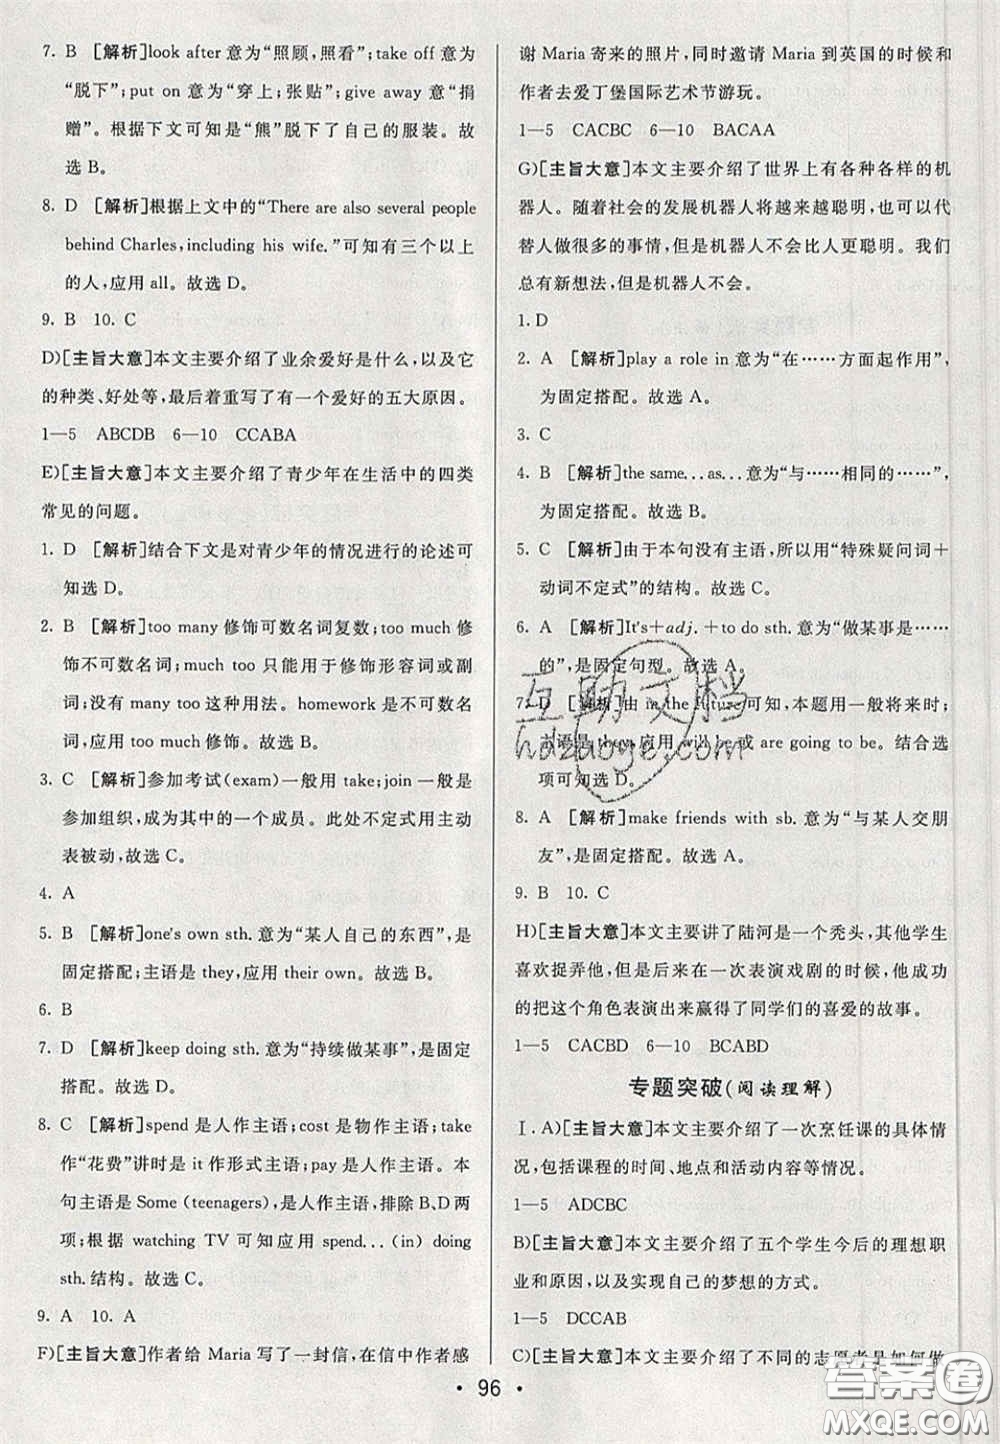 7. B [解析]look after意为“照顾,照看”;take off意为
“脱下”;put on意为“穿上;张贴”;give away意为“捐
赠”。根据下文可知是“熊”脱下了自己的服装。故
选B。
8. D [解析]根据上文中的“There are also several people
behind Charles,including his wife.”可知有三个以上
的人,应用all。故选D。
9. B 10. C
D)[主旨大意]本文主要介绍了业余爱好是什么,以及它
的种类、好处等,最后着重写了有一个爱好的五大原因。
1—5 ABCDB 6—10 CCABA
E)[主旨大意]本文主要介绍了青少年在生活中的四类
常见的问题。
1. D [解析]结合下文是对青少年的情况进行的论述可
知选D。
2. B [解析]too many修饰可数名词复数;too much修
饰不可数名词;much too只能用于修饰形容词或副
词;没有many too这种用法。homework是不可数名
词,应用too much修饰。故选B。
3. C [解析]参加考试(exam)一般用take;join一般用于
参加组织,成为其中的一个成员。此处不定式用主动
表被动,故选C。
4. A
5. B [解析]one's own sth.意为“某人自己的东西”,是
固定搭配;主语是they,应用their own。故选B。
6. B
7. D [解析]keep doing sth.意为“持续做某事”,是固定
搭配。故选D。
8. C [解析]spend是人作主语;cost是物作主语;take
作“花费”讲时是it作形式主语;pay是人作主语。本
句主语是Some (teenagers),是人作主语,排除B、D两
项;根据watching TV可知应用spend...(in) doing
sth.结构。故选C。
9. A 10. A
F)[主旨大意]作者给Maria写了一封信,在信中作者感
谢Maria寄来的照片,同时邀请Maria到英国的时候和
作者去爱丁堡国际艺术节游玩。
1—5 CACBC 6—10 BACAA
G)[主旨大意]本文主要介绍了世界上有各种各样的机
器人。随着社会的发展机器人将越来越聪明,也可以代
替人做很多的事情,但是机器人不会比人更聪明。我们
总有新想法,但是机器人不会。
1. D
2. A [解析]play a role in意为“在……方面起作用”,
为固定搭配。故选A。
3. C
4. B [解析]the same...as...意为“与……相同的……”,
为固定搭配。故选B。
5. C [解析]由于本句没有主语,所以用“特殊疑问词+
动词不定式”的结构。故选C。
6. A [解析]It's+adj.+to do sth.意为“做某事是……
的”,是固定句型。故选A。
7. D [解析]由in the future可知,本题用一般将来时;
主语是they,应用will be或are going to be。结合选
项可知选D。
8. A [解析]make friends with sb.意为“与某人交朋
友”,是固定搭配。故选A。
9. B 10. C
H)[主旨大意]本文主要讲了陆河是一个秃头,其他学生
喜欢捉弄他,但是后来在一次表演戏剧的时候,他成功
的把这个角色表演出来赢得了同学们的喜爱的故事。
1—5 CACBD 6—10 BCABD
专题突破(阅读理解)
Ⅰ.A)[主旨大意]本文主要介绍了一次烹饪课的具体情
况,包括课程的时间、地点和活动内容等情况。
1—5 ADCBC
B)[主旨大意]本文主要介绍了五个学生今后的理想职
业和原因,以及实现自己的梦想的方式。
1—5 DCCAB
C)[主旨大意]本文主要介绍了不同的志愿者是如何做
• 96 •
互助文档
hdzuoye.com
答案圈
MXQE.COM